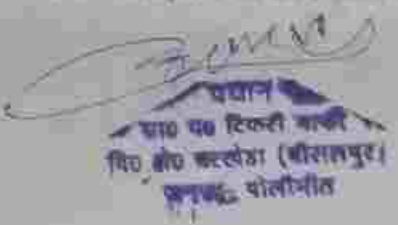 प्रधान
ग्रा० प० टिकरी माफी
वि० क्षे० बरखेडा (बीसलपुर)
जनपद पीलीभीत